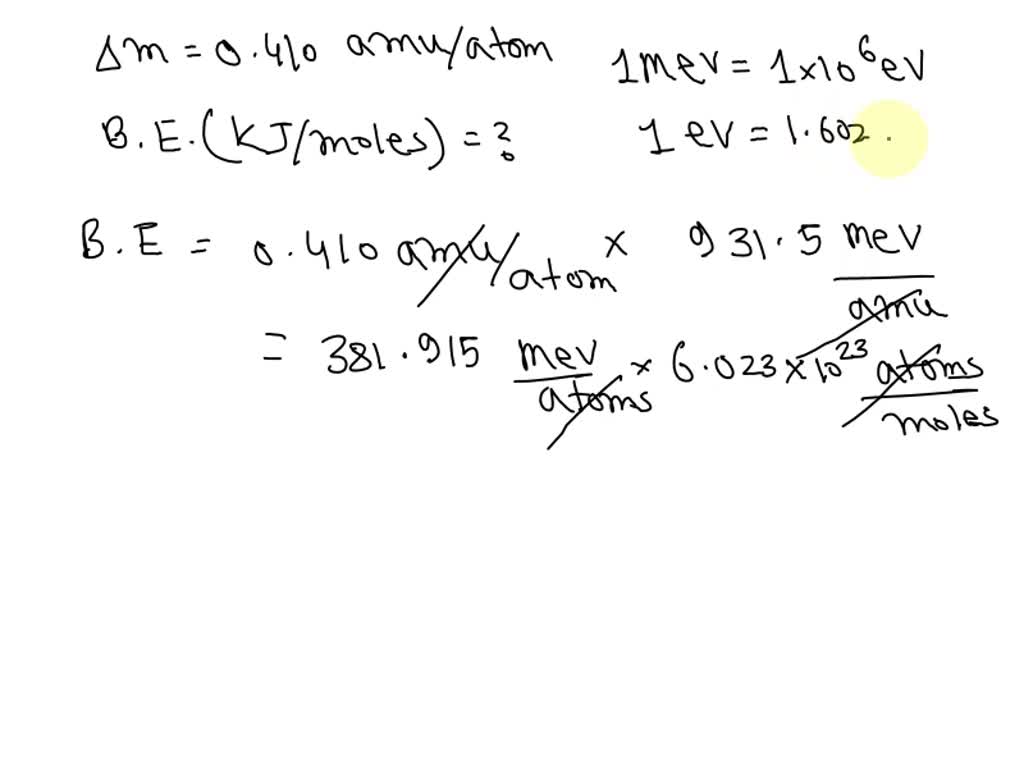 Δm = 0.410 amu/atom
1 mev = 1×10⁶ ev
B.E. (KJ/moles) = ?
1 ev = 1.602 .
B.E = 0.410 amu/atom × 931.5 mev/amu
= 381.915 mev/atoms × 6.023×10²³ atoms/moles